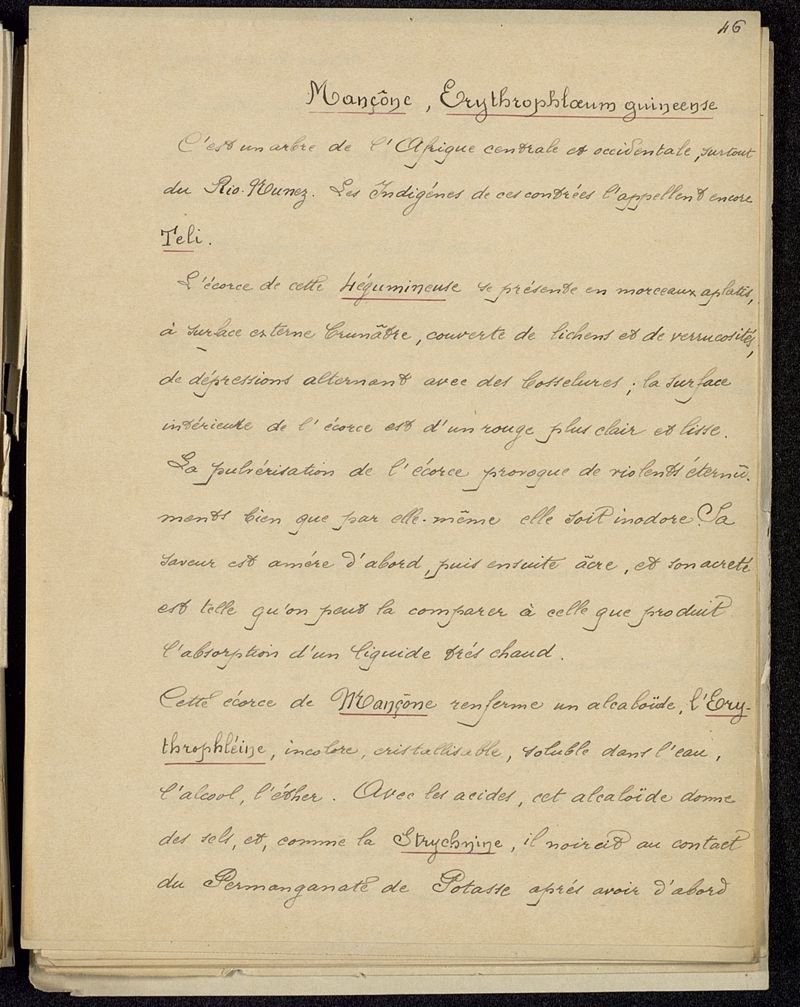 46
Mançône, Erythrophlœum guineense
C'est un arbre de l'Afrique centrale et occidentale, surtout
du Rio-Nunez. Les Indigénes de ces contrées l'appellent encore
Teli.
L'écorce de cette Légumineuse se présente en morceaux aplatis,
à surface externe brunâtre, couverte de lichens et de verrucosités,
de dépressions alternant avec des bosselures; la surface
intérieure de l'écorce est d'un rouge plus clair et lisse.
La pulvérisation de l'écorce provoque de violents éternû-
ments bien que par elle-même elle soit inodore. Sa
saveur est amére d'abord, puis ensuite âcre, et son acreté
est telle qu'on peut la comparer à celle que produit
l'absorption d'un liquide trés chaud.
Cette écorce de Mançône renferme un alcaloïde, l'Ery-
throphléine, incolore, cristallisable, soluble dans l'eau,
l'alcool, l'éther. Avec les acides, cet alcaloïde donne
des sels, et, comme la Strychnine, il noircit au contact
du Permanganate de Potasse aprés avoir d'abord